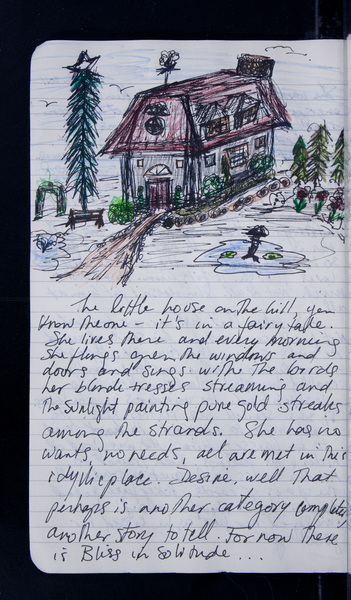 The little house on the hill, you
know the one – it's in a fairy tale.
She lives there and every morning
she flings open the windows and
doors and sings with the birds
her blonde tresses streaming and
the sunlight painting pure gold streaks
among the strands. She has no
wants no needs, all are met in this
idyllic place. Desire, well that
perhaps is another category completely
another story to tell. For now there
is Bliss in Solitude...